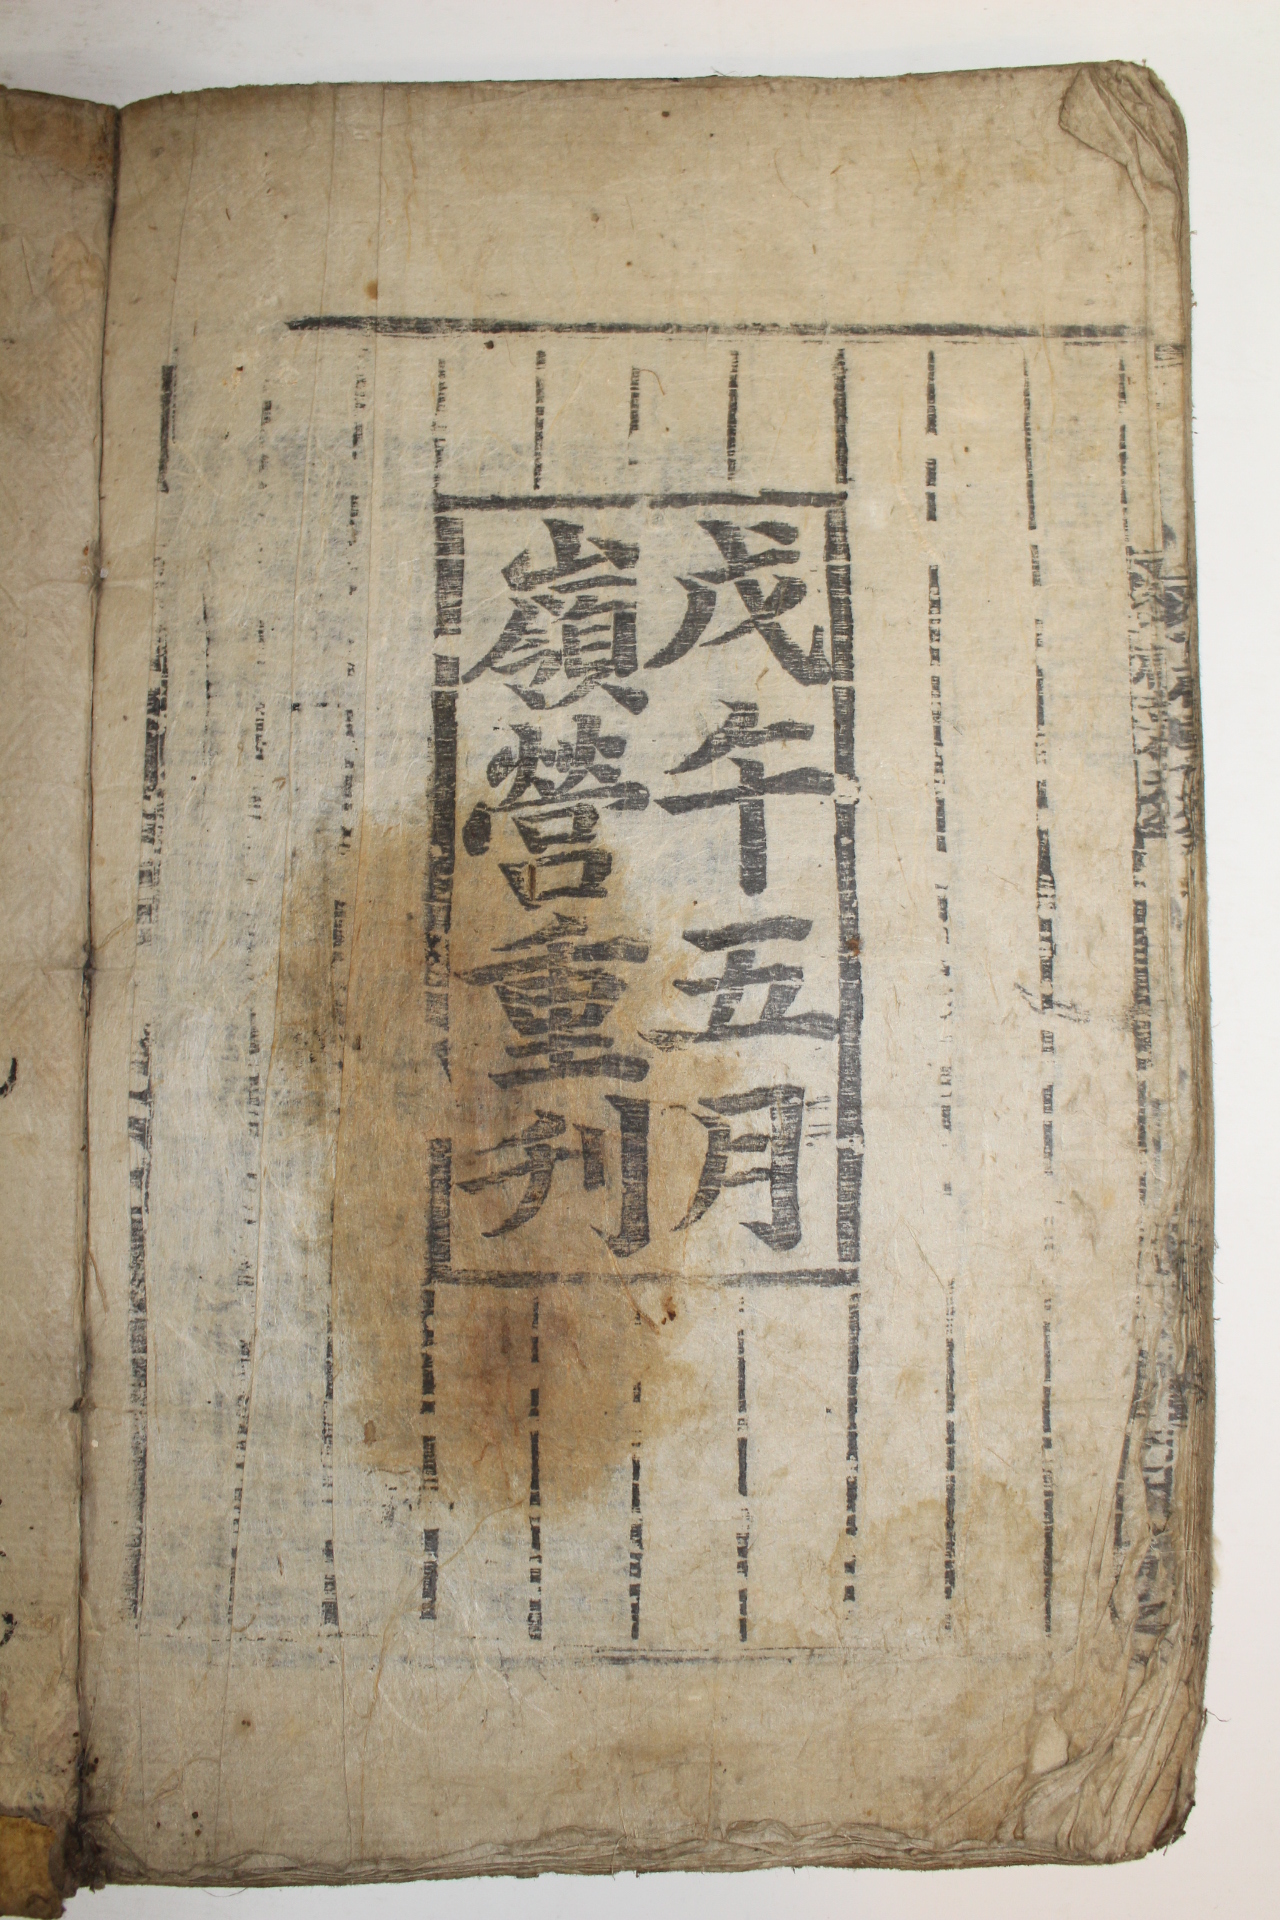 戊午五月
嶺營重刋